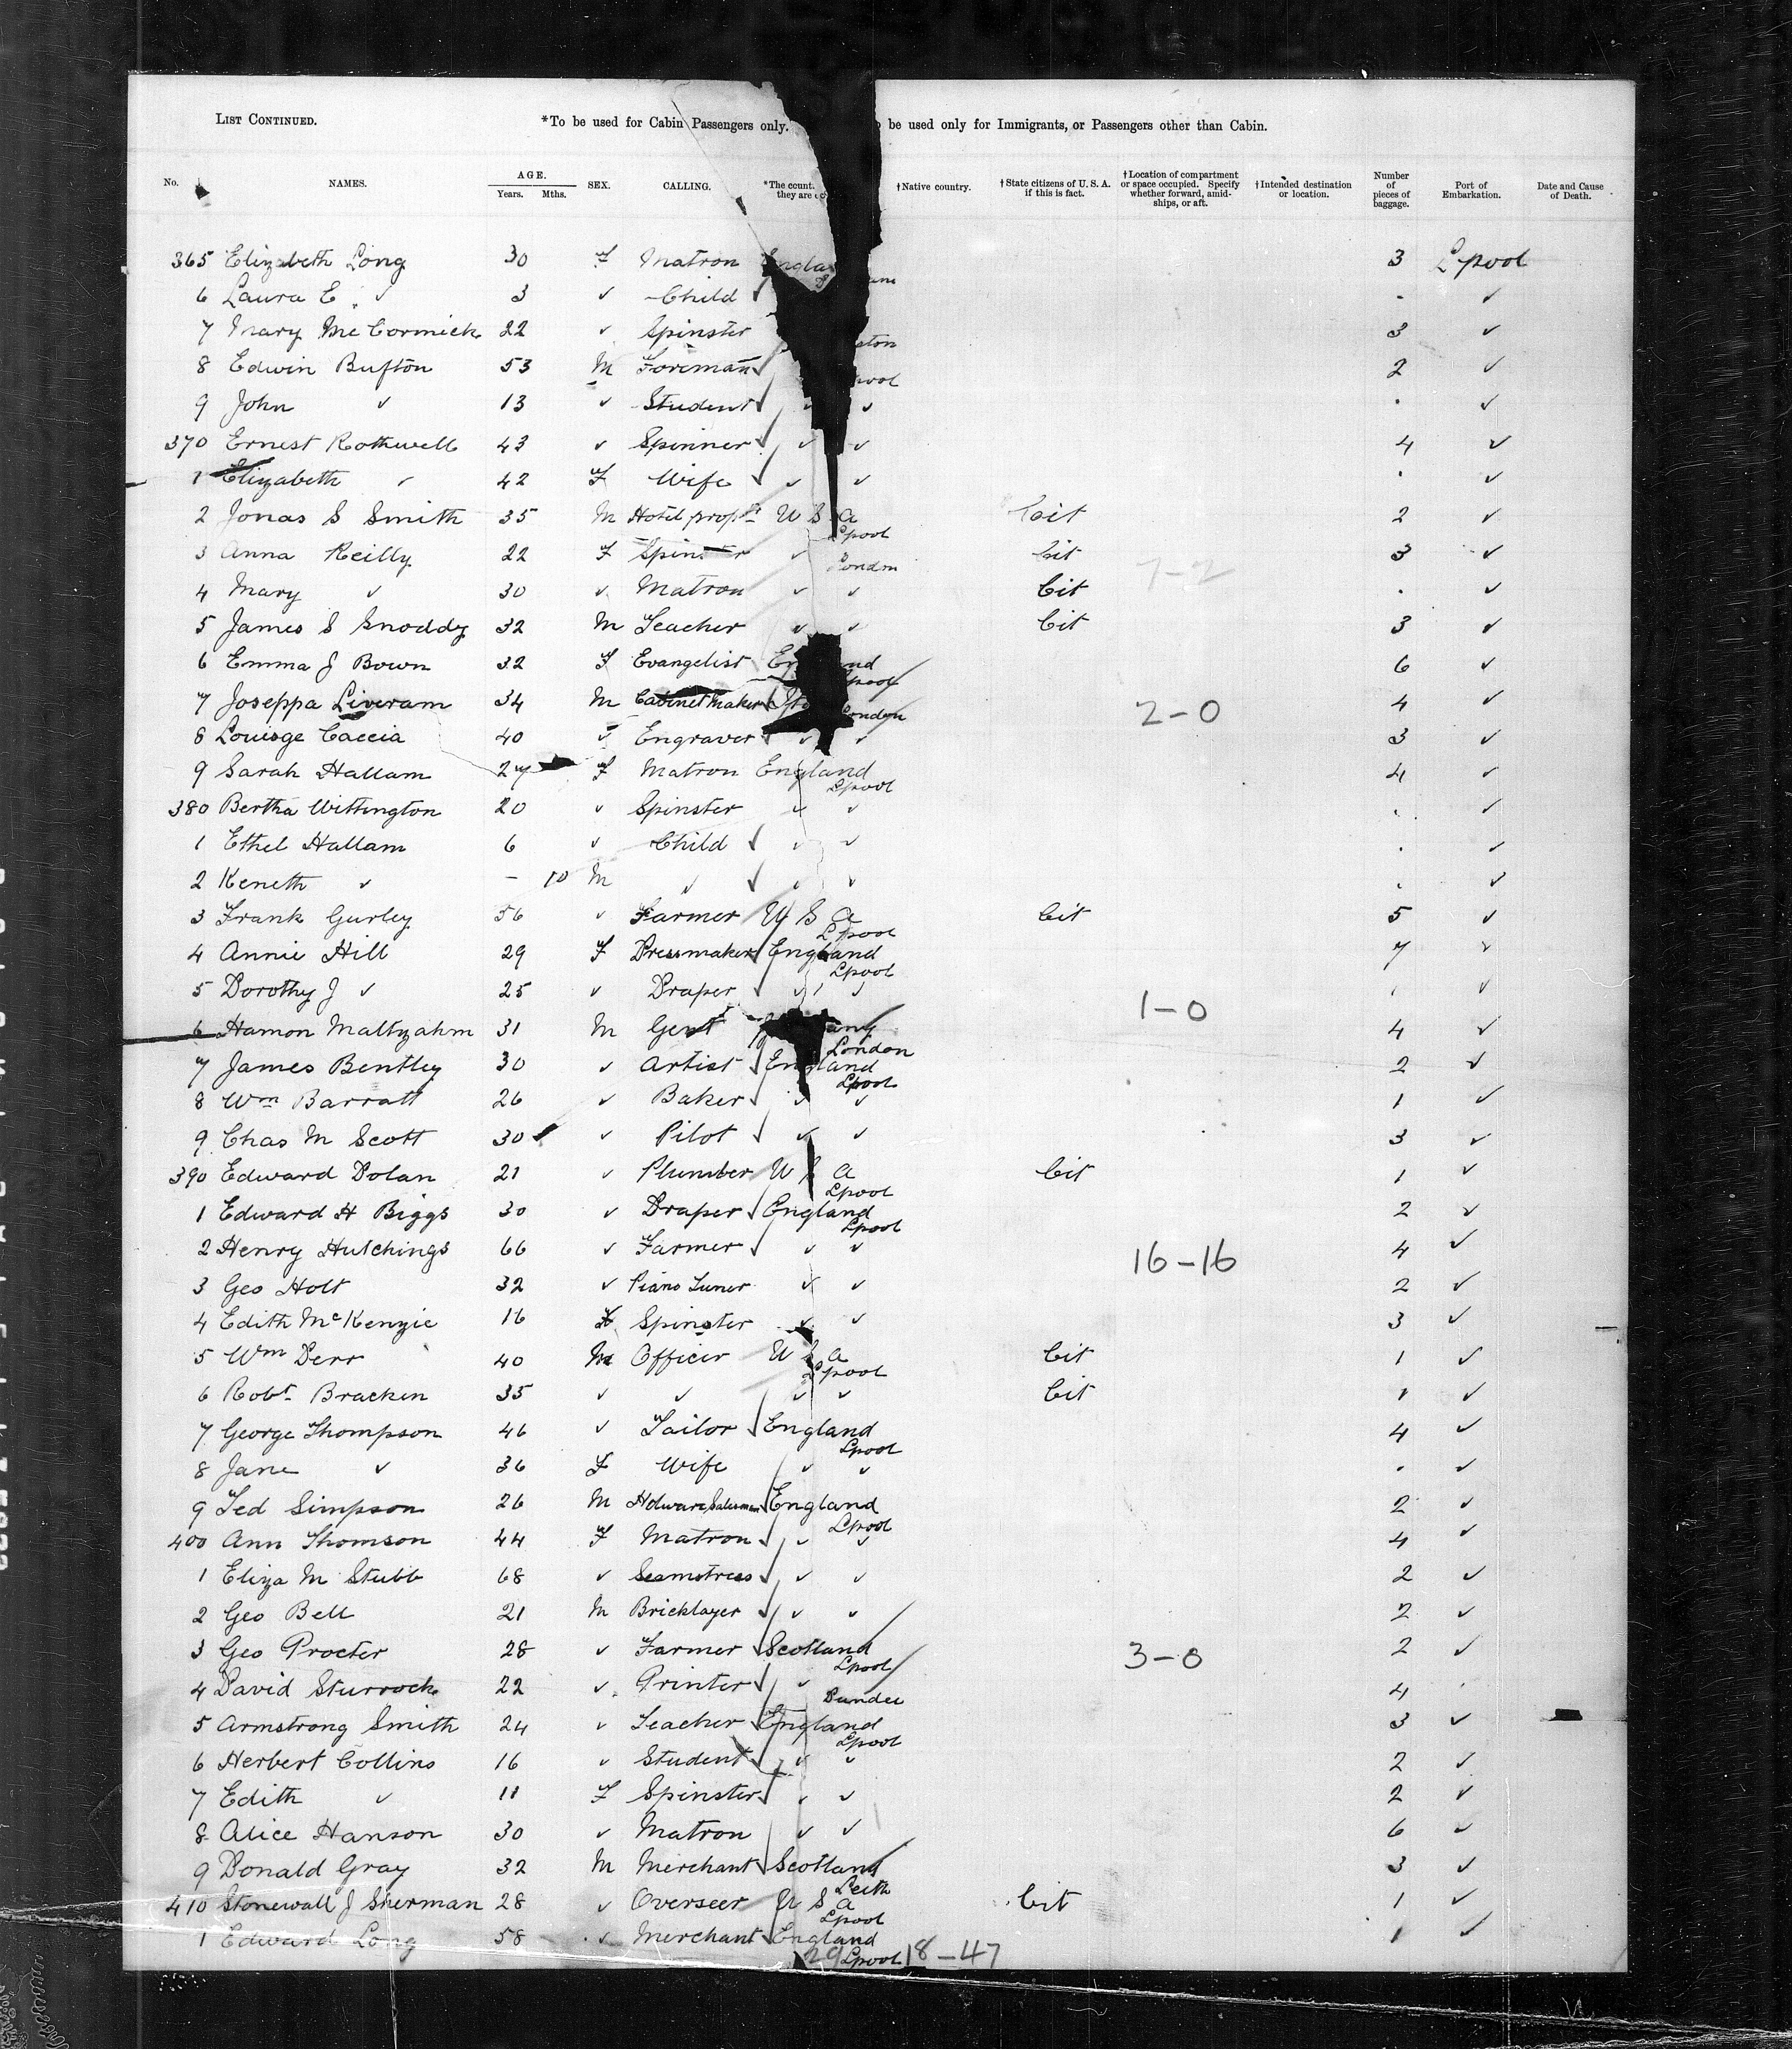 LIST CONTINUED. *To be used for Cabin Passengers only. be used only for Immigrants, or Passengers other than Cabin.
No. NAMES. AGE. Years. Mths. SEX. CALLING. *The count. they are †Native country. †State citizens of U. S. A. if this is fact. †Location of compartment or space occupied. Specify whether forward, amidships, or aft. †Intended destination or location. Number of pieces of baggage. Port of Embarkation. Date and Cause of Death.
365 Elizabeth Long 30 F Matron 3 Lpool
6 Laura E ✓ 3 ✓ Child ✓ . ✓
7 Mary McCormick 22 ✓ Spinster 3 ✓
8 Edwin Bufton 53 M Foreman ✓ 2 ✓
9 John ✓ 13 ✓ Student ✓ ✓ ✓ . ✓
370 Ernest Rothwell 43 ✓ Spinner ✓ ✓ ✓ 4 ✓
1 Elizabeth ✓ 42 F Wife ✓ ✓ ✓ . ✓
2 Jonas S Smith 35 M Hotel propr U S A Lpool Cit 2 ✓
3 Anna Reilly 22 F Spinster ✓ London Cit 7-2 3 ✓
4 Mary ✓ 30 ✓ Matron ✓ ✓ Cit . ✓
5 James S Snoddy 32 M Teacher ✓ ✓ Cit 3 ✓
6 Emma J Bown 32 F Evangelist Lpool 6 ✓
7 Joseppa Liveram 34 M Cabinet Maker ✓ London 2-0 4 ✓
8 Louisge Caccia 40 ✓ Engraver ✓ ✓ ✓ 3 ✓
9 Sarah Hallam 27 F Matron England Lpool 4 ✓
380 Bertha Wittington 20 ✓ Spinster ✓ ✓ . ✓
1 Ethel Hallam 6 ✓ Child ✓ ✓ ✓ . ✓
2 Keneth ✓ - 10 M ✓ ✓ ✓ ✓ . ✓
3 Frank Gurley 56 ✓ Farmer U S A Lpool Cit 5 ✓
4 Annie Hill 29 F Dressmaker England Lpool 7 ✓
5 Dorothy J ✓ 25 ✓ Draper ✓ ✓ ✓ . ✓
6 Hamon Maltzahm 31 M Gent London 1-0 4 ✓
7 James Bentley 30 ✓ Artist ✓ England Lpool 2 ✓
8 Wm Barratt 26 ✓ Baker ✓ ✓ ✓ 1 ✓
9 Chas M Scott 30 ✓ Pilot ✓ ✓ ✓ 3 ✓
390 Edward Dolan 21 ✓ Plumber U S A Lpool Cit 1 ✓
1 Edward H Biggs 30 ✓ Draper ✓ England Lpool 2 ✓
2 Henry Hutchings 66 ✓ Farmer ✓ ✓ ✓ 16-16 4 ✓
3 Geo Holt 32 ✓ Piano Tuner ✓ ✓ 2 ✓
4 Edith McKenzie 16 F Spinster ✓ ✓ 3 ✓
5 Wm Derr 40 M Officer U S A Lpool Cit 1 ✓
6 Robt Bracken 35 ✓ ✓ ✓ ✓ Cit 1 ✓
7 George Thompson 46 ✓ Tailor ✓ England Lpool 4 ✓
8 Jane ✓ 36 F Wife ✓ ✓ . ✓
9 Ted Simpson 26 M Hdware Salesman England Lpool 2 ✓
400 Ann Thomson 44 F Matron ✓ ✓ ✓ 4 ✓
1 Eliza M Stubb 68 ✓ Seamstress ✓ ✓ ✓ 2 ✓
2 Geo Bell 21 M Bricklayer ✓ ✓ ✓ 2 ✓
3 Geo Procter 28 ✓ Farmer ✓ Scotland Lpool 3-0 2 ✓
4 David Sturrock 22 ✓ Printer ✓ ✓ Dundee 4
5 Armstrong Smith 24 ✓ Teacher ✓ England Lpool 3 ✓
6 Herbert Collins 16 ✓ Student ✓ ✓ ✓ 2 ✓
7 Edith ✓ 11 F Spinster ✓ ✓ ✓ 2 ✓
8 Alice Hanson 30 ✓ Matron ✓ ✓ 6 ✓
9 Donald Gray 32 M Merchant ✓ Scotland Leith 3 ✓
410 Stonewall J Sherman 28 ✓ Overseer U S A Lpool Cit 1 ✓
1 Edward Long 58 ✓ Merchant ✓ England Lpool 1 ✓
29 18-47